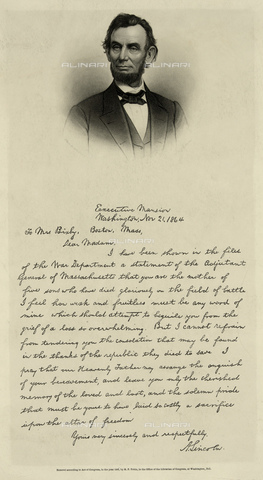 ALINARI
Executive Mansion
Washington, Nov 21, 1864
To Mrs Bixby, Boston, Mass,
Dear Madam,
I have been shown in the files
of the War Department a statement of the Adjutant
General of Massachusetts that you are the mother of
five sons who have died gloriously on the field of battle
I feel how weak and fruitless must be any word of
mine which should attempt to beguile you from the
grief of a loss so overwhelming. But I cannot refrain
from tendering you the consolation that may be found
in the thanks of the republic they died to save. I
pray that our Heavenly Father may assuage the anguish
of your bereavement, and leave you only the cherished
memory of the loved and lost, and the solemn pride
that must be yours to have laid so costly a sacrifice
upon the altar of freedom
Yours very sincerely and respectfully
A. Lincoln